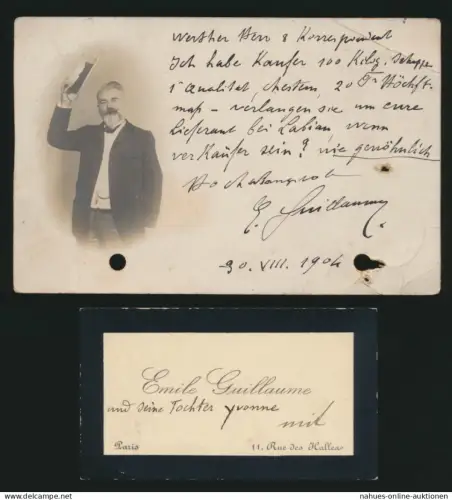 Werther Herr & Korrespondent
Ich habe Käufer 100 Kilog.
1a Qualität, chesten, 20 Fr Höchst-
maß - verlangen sie um eure
Lieferant bei Labian, wenn
verkäufer sein? wie gewöhnlich
Hochatungsvol
E. Guillaume
30. VIII. 1904
Emile Guillaume
und seine Tochter Yvonne
mit
Paris 11, Rue des Halles
Copyright protected image - nahues-online-auktionen